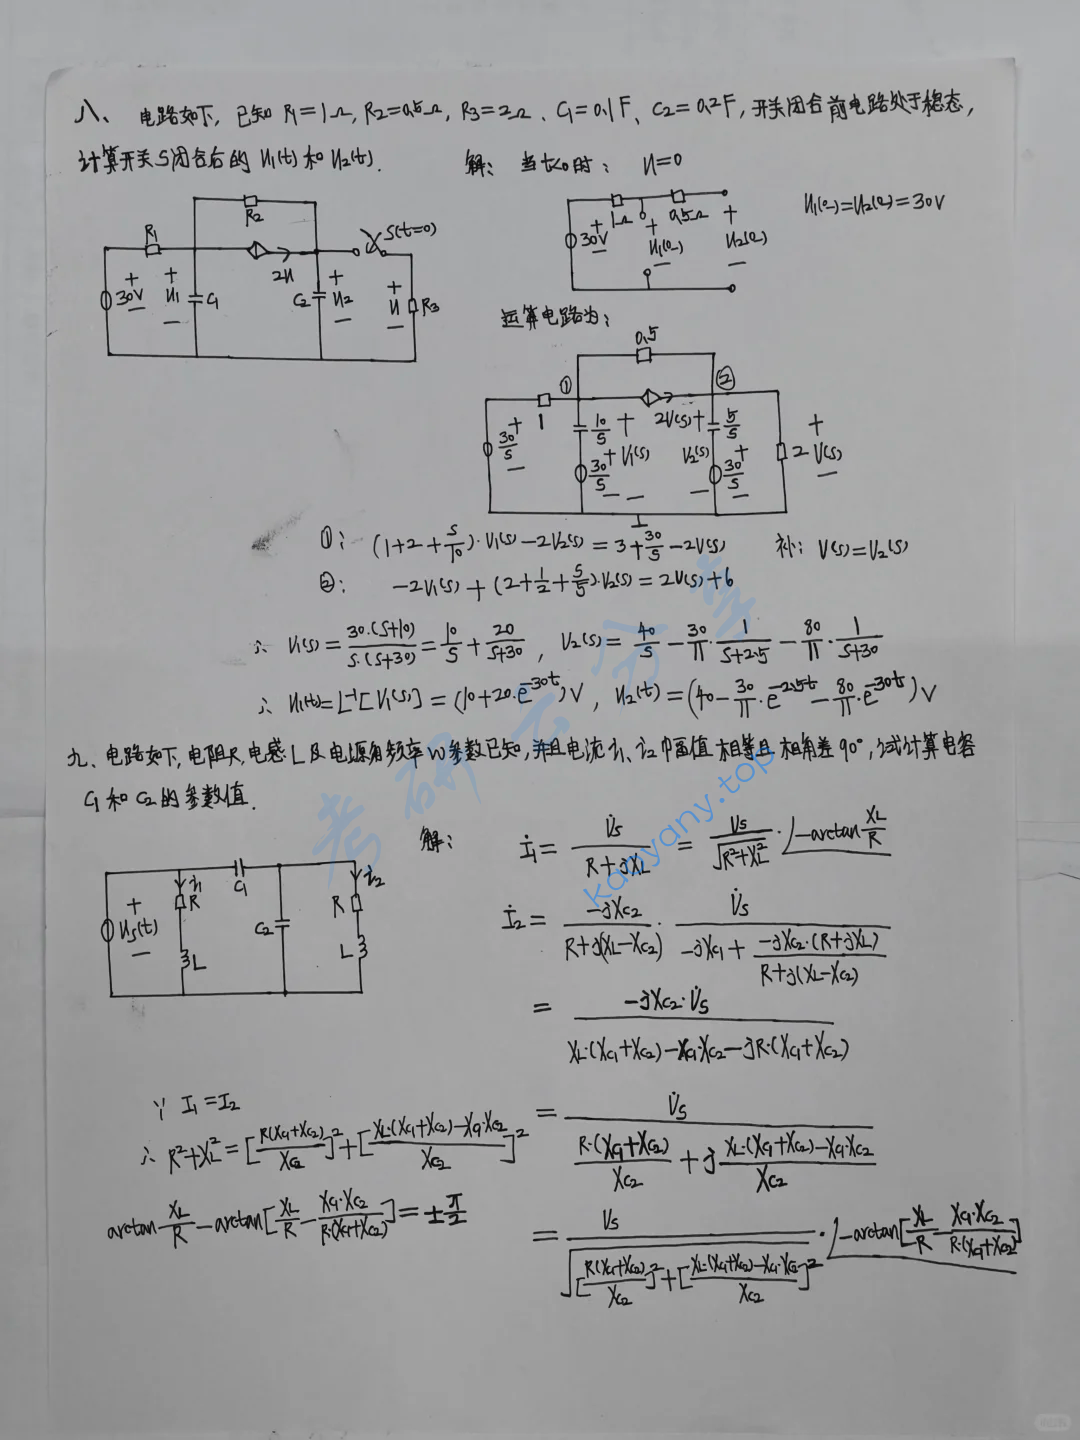 八、 电路如下, 已知 R1=1Ω, R2=0.5Ω, R3=2Ω、C1=0.1F、C2=0.2F, 开关闭合前电路处于稳态,
计算开关S闭合后的 U1(t) 和 U2(t).
解: 当t<0时: U=0
U1(0-)=U2(0-)=30V
R2
R1
S(t=0)
2U
+ 30V −
+ U1 −
C1
C2
+ U2 −
+ U −
R3
1Ω 0.5Ω
+ 30V −
+ U1(0-) −
+ U2(0-) −
运算电路为:
0.5
① ②
1
2U(s)
30/S
10/S
30/S
+ U1(s) −
+ U2(s) −
5/S
30/S
2
+ U(s) −
①: (1+2+S/10)·U1(s)−2U2(s)=3+30/S−2U(s) 补: U(s)=U2(s)
②: −2U1(s)+(2+1/2+S/5)·U2(s)=2U(s)+6
∴ U1(s)=30·(S+10)/S·(S+30)=10/S+20/S+30, U2(s)=40/S−30/11·1/S+2.5−80/11·1/S+30
∴ U1(t)=L⁻¹[U1(s)]=(10+20·e^-30t)V, U2(t)=(40−30/11·e^-2.5t−80/11·e^-30t)V
九、电路如下, 电阻R, 电感L及电源角频率W参数已知, 并且电流i1、i2幅值相等且相角差90°, 试计算电容
C1和C2的参数值.
i1
R
L
C1
C2
i2
R
L
+ Us(t) −
解: İ1=U̇s/R+jXL=Us/√R²+XL²·∠−arctan XL/R
İ2=−jXC2/R+j(XL−XC2)·U̇s/−jXC1+−jXC2·(R+jXL)/R+j(XL−XC2)
=−jXC2·U̇s/XL·(XC1+XC2)−XC1·XC2−jR·(XC1+XC2)
=U̇s/R·(XC1+XC2)/XC2+j XL·(XC1+XC2)−XC1·XC2/XC2
=Us/√[R(XC1+XC2)/XC2]²+[XL·(XC1+XC2)−XC1·XC2/XC2]²·∠−arctan[XL/R−XC1·XC2/R·(XC1+XC2)]
∵ I1=I2
∴ R²+XL²=[R(XC1+XC2)/XC2]²+[XL·(XC1+XC2)−XC1·XC2/XC2]²
arctan XL/R−arctan[XL/R−XC1·XC2/R·(XC1+XC2)]=±π/2
考研云分享
kaoyany.top